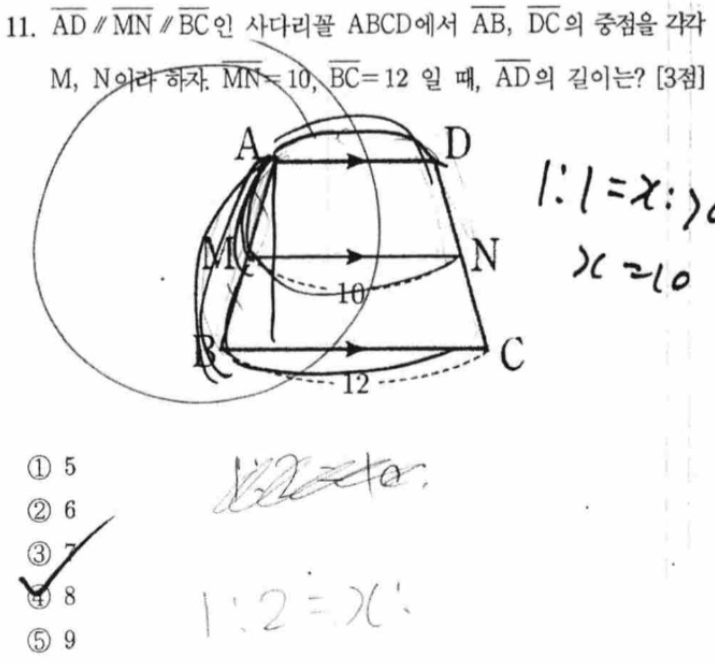 11. AD // MN // BC인 사다리꼴 ABCD에서 AB, DC의 중점을 각각
M, N이라 하자. MN=10, BC=12 일 때, AD의 길이는? [3점]
A D
1:1=x:
M N
x=10
10
B C
12
① 5
② 6
③ 7
④ 8
⑤ 9
1:2=x: